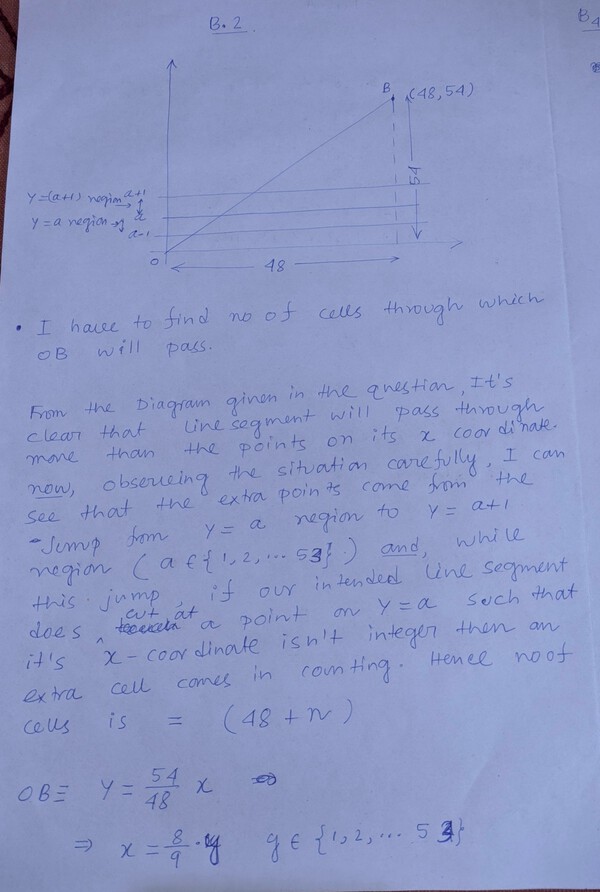 B.2
B4
B (48,54)
54
Y=(a+1) region a+1
Y=a region a
a-1
O
48
• I have to find no of cells through which
OB will pass.
From the Diagram given in the question, It's
clear that line segment will pass through
more than the points on its x coordinate.
now, observing the situation carefully, I can
see that the extra points come from the
Jump from Y=a region to Y=a+1
region (a∈{1,2,...53}) and, while
this jump, if our intended line segment
does cut at a point on Y=a such that
it's x-coordinate isn't integer then an
extra cell comes in counting. Hence no of
cells is = (48+n)
OB≡ Y = 54/48 x ⇔
⇒ x = 8/9 · y y∈{1,2,...53}